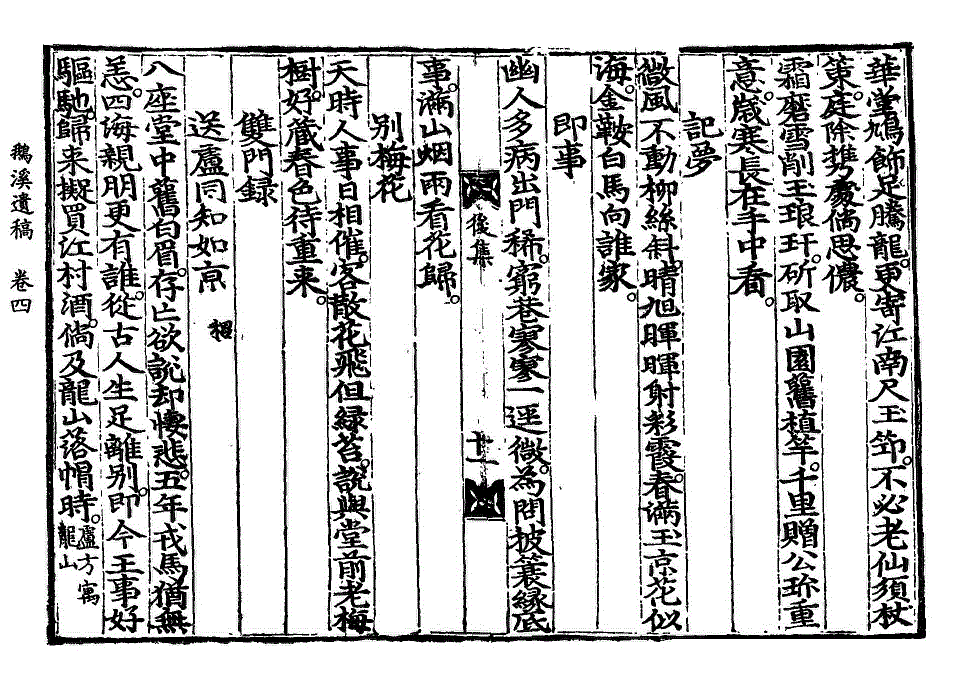 華堂鳩飾足騰龍。更寄江南尺玉節。不必老仙須杖
策。庭除携處倘思儂。
霜磨雪削玉琅玕。斫取山園舊植竿。千里贈公珎重
意。歲寒長在手中看。
記夢
微風不動柳絲斜。晴旭暉暉射彩霞。春滿玉京花似
海。金鞍白馬向誰家。
即事
幽人多病出門稀。窮巷寥寥一逕微。為問披蓑緣底
後集 十一
事。滿山烟雨看花歸。
別梅花
天時人事日相催。客散花飛但緑苔。說與堂前老梅
樹好。蔵春色待重来。
雙門録
送盧同知如京 招
八座堂中舊白眉。存亡欲說却悽悲。五年戎馬猶無
恙。四海親朋更有誰。從古人生足離別。即今王事好
驅馳。歸来擬買江村酒。倘及龍山落帽時。盧方寓龍山
鵝溪遺稿 卷四